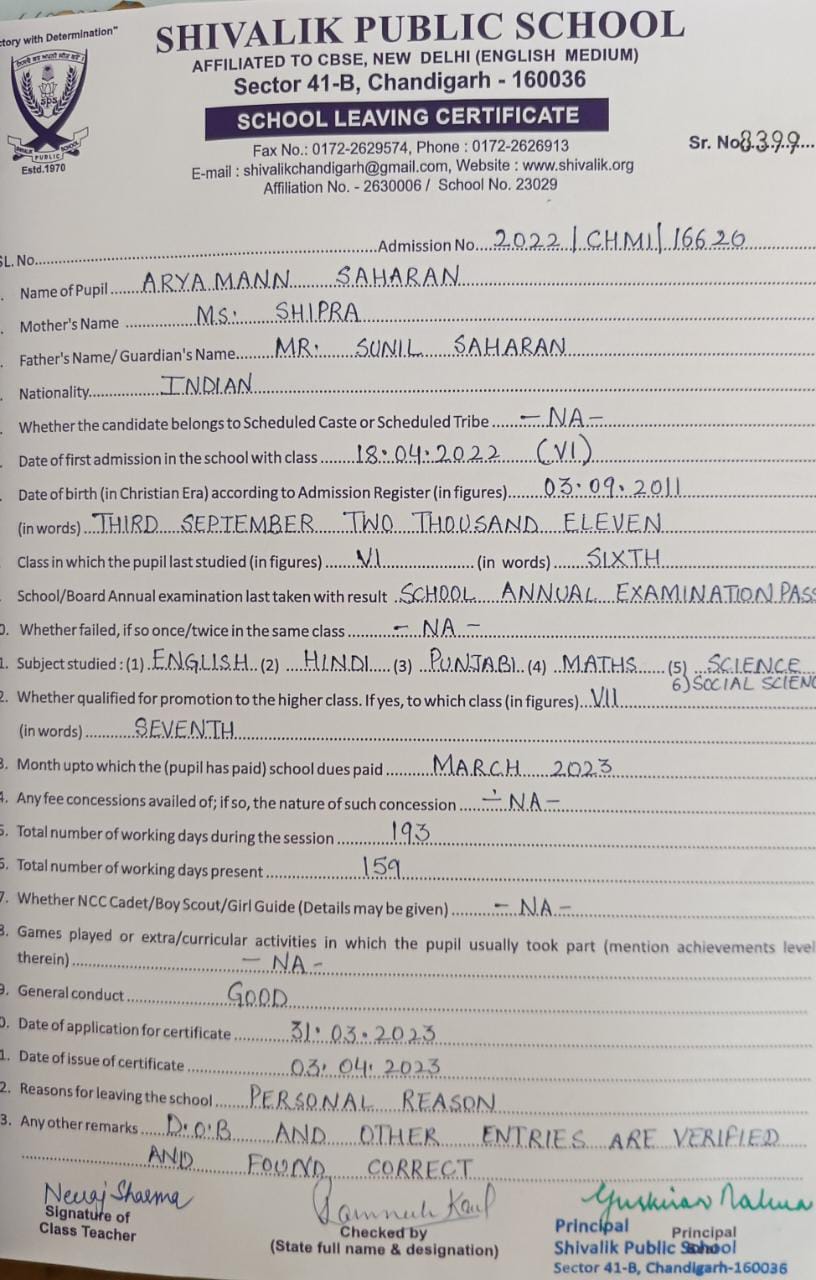 ctory with Determination"
SHIVALIK PUBLIC SCHOOL
AFFILIATED TO CBSE, NEW DELHI (ENGLISH MEDIUM)
Sector 41-B, Chandigarh - 160036
SCHOOL LEAVING CERTIFICATE
Fax No.: 0172-2629574, Phone : 0172-2626913
Sr. No. 8399
E-mail : shivalikchandigarh@gmail.com, Website : www.shivalik.org
Affiliation No. - 2630006 / School No. 23029
sps
PUBLIC SCHOOL
Estd.1970
SL. No.......... Admission No....2022/CHMI/16620
Name of Pupil ......ARYAMANN SAHARAN
Mother's Name ......MS. SHIPRA
Father's Name/ Guardian's Name......MR. SUNIL SAHARAN
Nationality......INDIAN
Whether the candidate belongs to Scheduled Caste or Scheduled Tribe ......- NA -
Date of first admission in the school with class ......18.04.2022 (VI)
Date of birth (in Christian Era) according to Admission Register (in figures)......03.09.2011
(in words) ..THIRD SEPTEMBER TWO THOUSAND ELEVEN
Class in which the pupil last studied (in figures) ......VI...... (in words) ......SIXTH
School/Board Annual examination last taken with result ..SCHOOL ANNUAL EXAMINATION PASS
0. Whether failed, if so once/twice in the same class ......- NA -
1. Subject studied : (1) ENGLISH (2) HINDI (3) PUNJABI (4) MATHS (5) SCIENCE
6) SOCIAL SCIENC
2. Whether qualified for promotion to the higher class. If yes, to which class (in figures)...VII
(in words) ......SEVENTH
3. Month upto which the (pupil has paid) school dues paid ......MARCH 2023
4. Any fee concessions availed of; if so, the nature of such concession ......- NA -
5. Total number of working days during the session ......193
6. Total number of working days present ......159
7. Whether NCC Cadet/Boy Scout/Girl Guide (Details may be given) ......- NA -
8. Games played or extra/curricular activities in which the pupil usually took part (mention achievements level
therein) ......- NA -
9. General conduct ......GOOD
0. Date of application for certificate ......31.03.2023
1. Date of issue of certificate ......03.04.2023
2. Reasons for leaving the school ......PERSONAL REASON
3. Any other remarks ......D.O.B AND OTHER ENTRIES ARE VERIFIED
AND FOUND CORRECT
Neeraj Sharma
Signature of
Class Teacher
Kaul
Checked by
(State full name & designation)
Principal
Principal
Shivalik Public School
Sector 41-B, Chandigarh-160036